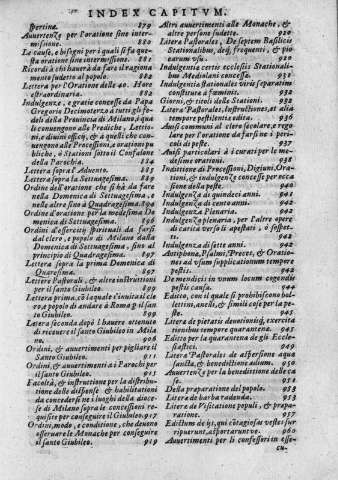 INDEX CAPITVM.
spertina. 879
Auuertenze per l'oratione sine inter-
missione. 880
Le cause, e bisogni per li quali si fa que-
sta oratione sine intermissione. 880
Ricordi à chi hauerà da fare il ragiona
mento sudetto al popolo. 882
Lettera per l'Oratione delle 40. Hore
estraordinaria. 883
Indulgenze, e gratie concesse da Papa
Gregorio Decimoterzo a tutti gli fe-
deli della Prouincia di Milano, à qua
li conuengono alle Prediche, Lettio-
ni, e diuini officij, & à questi che con-
uengono alle Processioni, e orationi pu
bliche, ò Stationi sotto il Confalone
della Parochia. 884
Lettera sopra l'Aduento. 885
Lettera sopra la Settuagesima. 889
Ordine dell'oratione che si hà da fare
nella Domenica di Settuagesima, e
nelle altre sino a Quadragesima. 894
Ordine d'oratione per la medesima Do
menica di Settuagesima. 896
Ordini d'essercitij spirituali da farsi
dal clero, e popolo di Milano dalla
Domenica di Settuagesima, sino al
principio di Quadragesima. 897
Lettera sopra la prima Domenica di
Quaresima. 897
Lettere Pastorali, & altre instruttioni
per il santo Giubileo. 899
Lettera prima, cō la quale s'inuita il cle
ro, e popolo di andare à Roma p il santo
Giubileo. 899
Latera seconda dopò l'hauere ottenuto
di riceuere il santo Giubileo in Mila
no. 906
Ordini, & auuertimenti per pigliare il
Santo Giubileo. 911
Ordini, & auuertimenti a i Parochi per
il santo Giubileo. 915
Facoltà, & instruttione per la distribu-
tione delle dispense & habilitationi
da concedersi ne i luoghi della dioce-
se di Milano sopra le concessioni requi-
site per conseguire il Giubileo. 917
Ordini, modo, e conditione, che deueno
osseruare le Monache per conseguire
il santo Giubileo. 919
Altri auuertimenti alle Monache, &
altre persone sudette. 920
Litera Pastorales, De septem Basilicis
Stationalibus, deq. frequenti, & pio
earum vsu. 920
Indulgentia certis ecclesijs Stationali-
bus Mediolani concessa. 930
Indulgentia stationales viris separatim
constituta à fœminis. 931
Giorni, & titoli delle Stationi. 931
Litera Pastorales, Instructiones, et alia
tempore pestilentia edita. 936
Auisi communi al clero secolare, e rego
lare per l'oratione da farsi ne i peri-
coli di peste. 937
Auisi particolari à i curati per le me-
desime orationi. 938
Inditione di Processioni, Digiuni, Orati-
oni, & indulgenze concesse per occa
sione della peste. 938
Indulgenza di quindeci anni. 942
Indulgenza di cento anni. 942
Indulgenza Plenaria. 942
Indulgenza plenaria, per l'altre opere
di carità verso li apestati, ò sospet-
ti. 942
Indulgenza di sette anni. 942
Antiphona, Psalmi, Preces, & Oratio-
nes ad vsum supplicationum tempore
pestis. 942
De mendicis in vnum locum cogendis
pestis causa. 942
Editto, con il quale si prohibiscono bul-
lettini, anelli, & simili cose per la pe-
ste. 943
Litera de pietatis deuotionisq. exercita
tionibus tempore quarantena. 945
Editto per la quarantena de gli Eccle-
siastici. 949
Litera Pastorales de aspersione aqua
sancta, & benedictione adium. 950
Auuertenze per la benedittione delle ca
se. 952
Della preparatione del popolo. 953
Litera de barba radenda. 953
Litera de Visitatione populi, & prepa-
ratione. 957
Edictum de ijs, qui cōtagiosas vestes sur
ripuerunt, asportaruntq. 960
Auuertimenti per li confessori in esse-
cu-